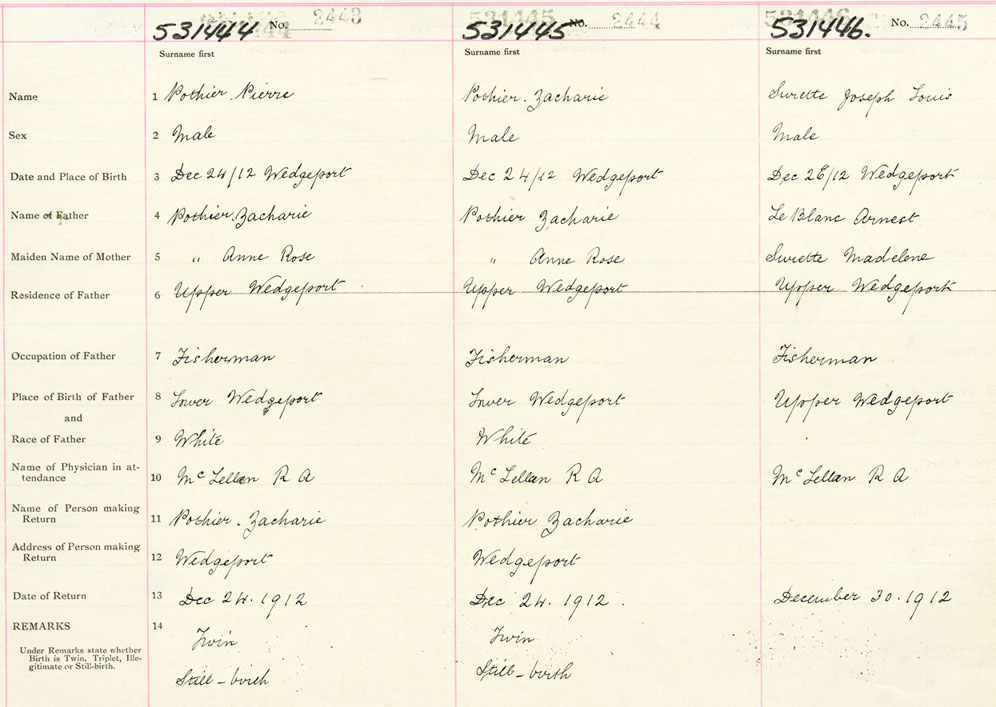 531444 No. 2443 531445 No. 2444 531446. No. 2445
Surname first Surname first Surname first
Name 1 Pothier Pierre Pothier. Zacharie Surette Joseph Louis
Sex 2 Male Male Male
Date and Place of Birth 3 Dec 24/12 Wedgeport Dec 24/12 Wedgeport Dec 26/12 Wedgeport
Name of Father 4 Pothier, Zacharie Pothier Zacharie Le Blanc Arnest
Maiden Name of Mother 5 " Anne Rose " Anne Rose Surette Madelene
Residence of Father 6 Upper Wedgeport Upper Wedgeport Upper Wedgeport
Occupation of Father 7 Fisherman Fisherman Fisherman
Place of Birth of Father 8 Lower Wedgeport Lower Wedgeport Upper Wedgeport
and
Race of Father 9 White White
Name of Physician in at-
tendance 10 McLellan R A McLellan R A McLellan R A
Name of Person making
Return 11 Pothier. Zacharie Pothier Zacharie
Address of Person making
Return 12 Wedgeport Wedgeport
Date of Return 13 Dec 24. 1912 Dec 24. 1912. December 30. 1912
REMARKS 14 Twin Twin
Under Remarks state whether
Birth is Twin, Triplet, Ille-
gitimate or Still-birth.
Still-birth Still-birth